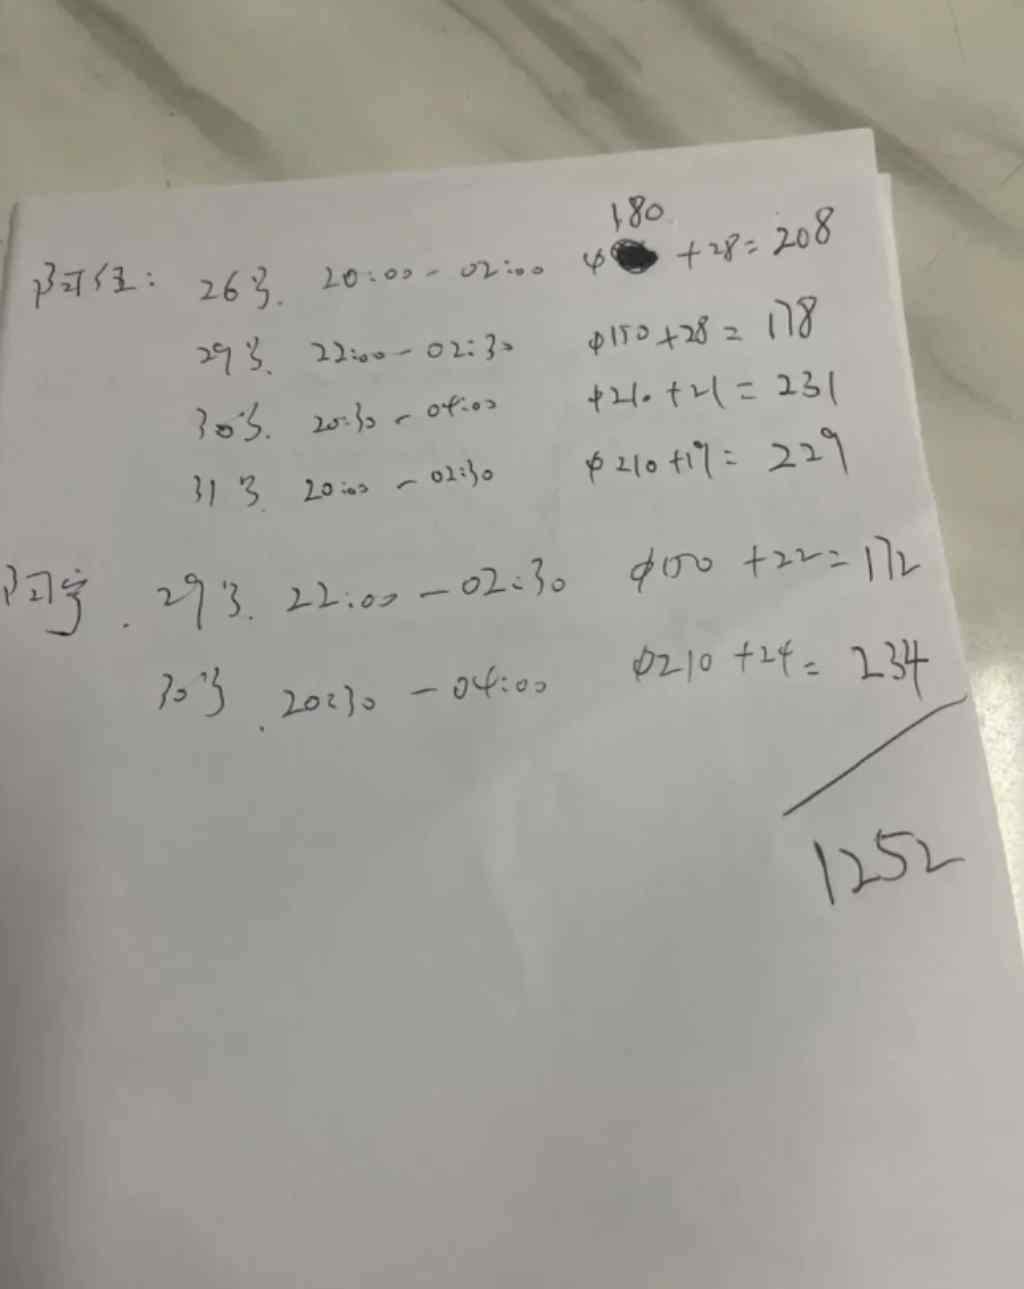 阿任: 26号. 20:00-02:00 $180 +28=208
29号. 22:00-02:30 $150+28=178
30号. 20:30-04:00 $210+21=231
31号. 20:00-02:30 $210+19=229
阿宇. 29号. 22:00-02:30 $150+22=172
30号. 20:30-04:00 $210+24=234
1252